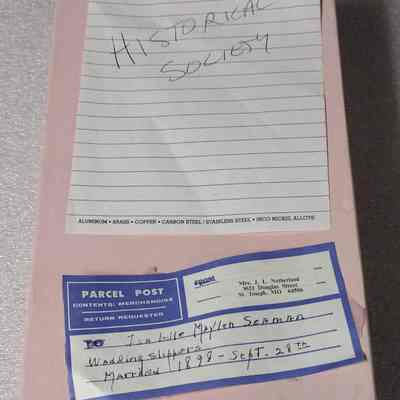 HISTORICAL
SOCIETY
ALUMINUM • BRASS • COPPER • CARBON STEEL / STAINLESS STEEL • INCO NICKEL ALLOYS
PARCEL POST
CONTENTS: MERCHANDISE
RETURN REQUESTED
FROM
Mrs. J. L. Netherland
3621 Douglas Street
St. Joseph, MO
TO Isabelle Maylen Seaman
Wedding Slippers
Married 1898 - Sept. 28th